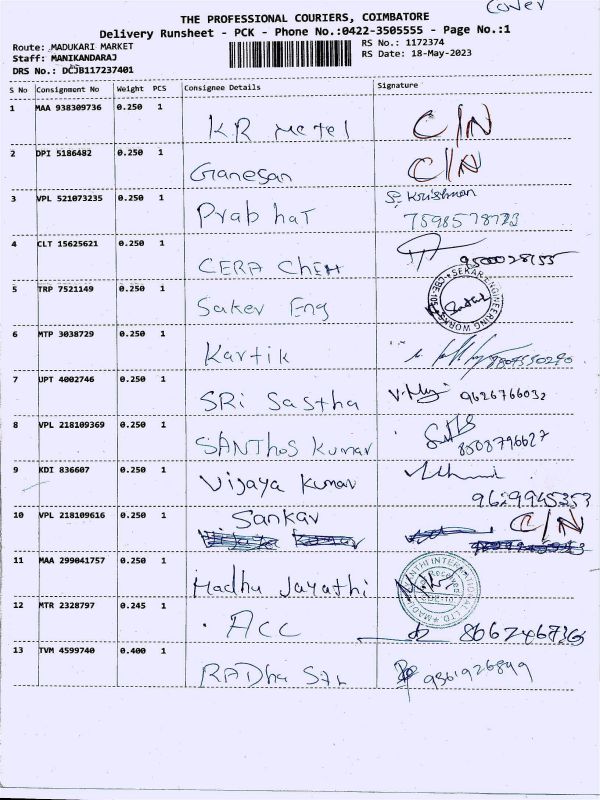 Cover
THE PROFESSIONAL COURIERS, COIMBATORE
Delivery Runsheet - PCK - Phone No.:0422-3505555 - Page No.:1
Route: MADUKARI MARKET
Staff: MANIKANDARAJ
DRS No.: DCJB117237401
RS No.: 1172374
RS Date: 18-May-2023
S No Consignment No Weight PCS Consignee Details Signature
1 MAA 938309736 0.250 1 KR Metel C/N
2 DPI 5186482 0.250 1 Ganesan C/N
3 VPL 521073235 0.250 1 Prabhat S. Krishnan
7598578723
4 CLT 15625621 0.250 1 CERA CHEM 9500028155
5 TRP 7521149 0.250 1 Saker Eng SEKAR ENGINEERING WORKS CBE-105
6 MTP 3038729 0.250 1 Kartik
7 UPT 4002746 0.250 1 SRi Sastha 9626766032
8 VPL 218109369 0.250 1 SANThos Kumar 8508796627
9 KDI 836607 0.250 1 Vijaya Kumar 9629945353
10 VPL 218109616 0.250 1 Sankar C/N
11 MAA 299041757 0.250 1 Madhu Jayathi
12 MTR 2328797 0.245 1 ACC
13 TVM 4599740 0.400 1 RADha 9361926849